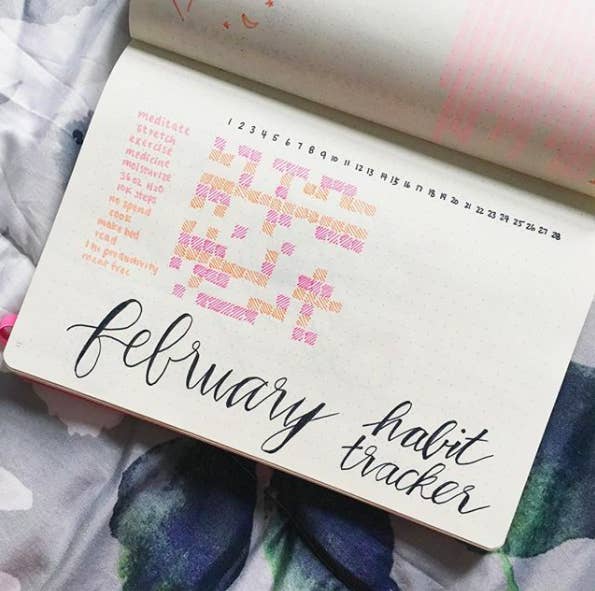 1 2 3 4 5 6 7 8 9 10 11 12 13 14 15 16 17 18 19 20 21 22 23 24 25 26 27 28
meditate
stretch
exercise
medicine
moisturize
36oz H2O
10K steps
no spend
cook
make bed
read
1 hr productivity
meat free
february
habit
tracker